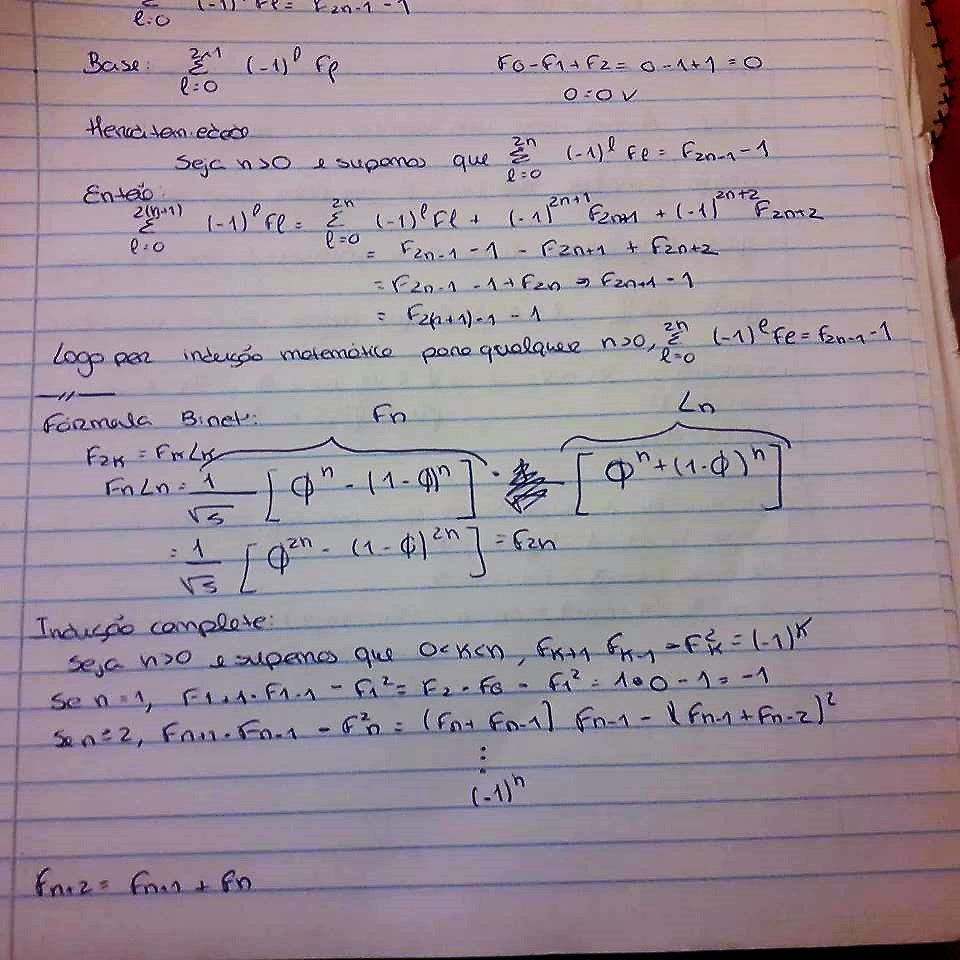 ∑_{ℓ=0} (-1)^ℓ Fℓ = F_{2n-1} - 1
Base: ∑_{ℓ=0}^{2·1} (-1)^ℓ Fℓ F0 - F1 + F2 = 0 - 1 + 1 = 0
0 = 0 v
Seja n>0 e supomos que ∑_{ℓ=0}^{2n} (-1)^ℓ Fℓ = F_{2n-1} - 1
Então:
∑_{ℓ=0}^{2(n+1)} (-1)^ℓ Fℓ = ∑_{ℓ=0}^{2n} (-1)^ℓ Fℓ + (-1)^{2n+1} F_{2n+1} + (-1)^{2n+2} F_{2n+2}
= F_{2n-1} - 1 - F_{2n+1} + F_{2n+2}
= F_{2n-1} - 1 + F_{2n} ⇒ F_{2n+1} - 1
= F_{2(n+1)-1} - 1
Logo por indução matemática para qualquer n>0, ∑_{ℓ=0}^{2n} (-1)^ℓ Fℓ = F_{2n-1} - 1
—//—
Fórmula Binet: Fn Ln
F_{2K} = F_K L_K
Fn Ln = 1/√5 [ϕ^n - (1-ϕ)^n] · [ϕ^n + (1-ϕ)^n]
= 1/√5 [ϕ^{2n} - (1-ϕ)^{2n}] = F_{2n}
Indução completa:
Seja n>0 e supomos que 0<K<n, F_{K+1} F_{K-1} - F_K^2 = (-1)^K
Se n=1, F_{1+1} · F_{1-1} - F_1^2 = F_2 · F_0 - F_1^2 = 1•0 - 1 = -1
Se n≥2, F_{n+1} · F_{n-1} - F_n^2 = (F_n + F_{n-1}) F_{n-1} - (F_{n-1} + F_{n-2})^2
⋮
(-1)^n
F_{n+2} = F_{n+1} + F_n